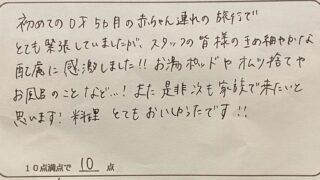 初めての0才5ヵ月の赤ちゃん連れの旅行で
とても緊張していましたが、スタッフの皆様のきめ細やかな
配慮に感激しました!!お湯ポットやオムツ捨てや
お風呂のことなど…!また是非次も家族で来たいと
思います!料理とてもおいしかったです!!
10点満点で 10 点